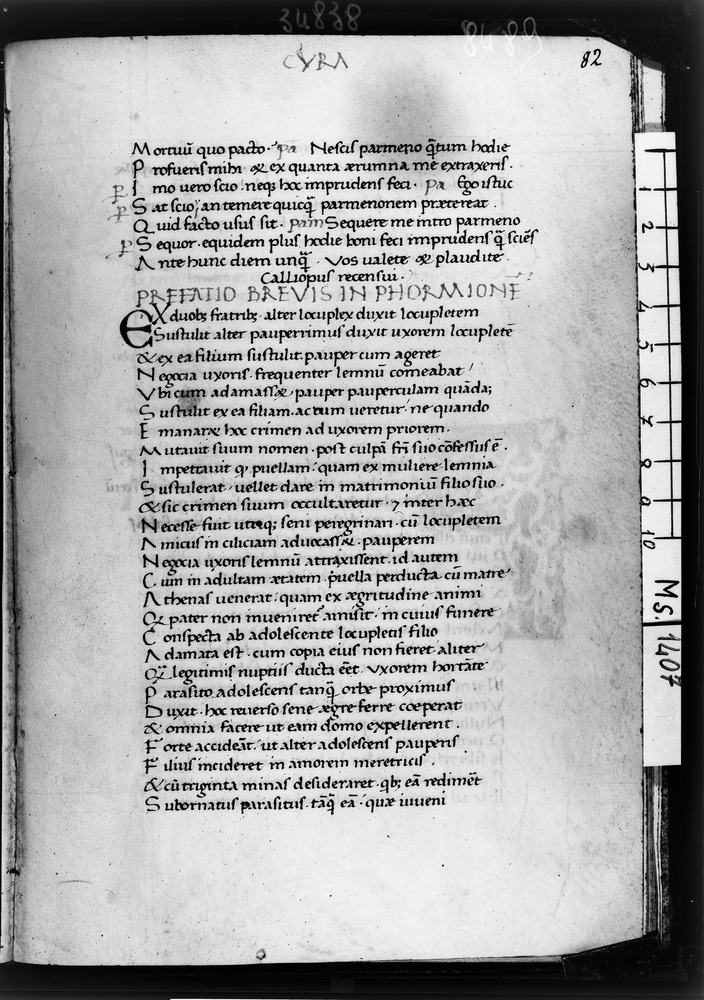 34838
8489
CVRA
82
Mortuū quo pacto· Pa Nescis parmeno q̄tum hodie
Profueris mihi & ex quanta ærumna me extraxeris·
P Imo vero scio neq; hoc imprudens feci· Pa Ego istuc
P Sat scio, an temere quicq̄ parmenonem prætereat·
Quid facto usus sit· Pam Sequere me intro parmeno
P Sequor· equidem plus hodie boni feci imprudens q̄ sciēs
Ante hunc diem unq̄· Vos valete & plaudite·
Calliopius recensui·
PREFATIO BREVIS IN PHORMIONE
EX duobȝ fratribȝ· alter locuplex duxit locupletem
Sustulit alter pauperrimus duxit uxorem locupletē
& ex ea filium sustulit· pauper cum ageret
Negocia uxoris· frequenter lemnū comeabat
Vbi cum adamass&, pauper pauperculam quāda;
Sustulit ex ea filiam· ac tum veretur· ne quando
Emanar& hoc crimen ad uxorem priorem·
Mutavit suum nomen· post culpā fr̄i suo cōfessus ē·
Impetravit q, puellam· quam ex muliere lemnia
Sustulerat· vellet dare in matrimoniū filio suo·
& sic crimen suum occultaretur· ⁊ inter hæc
Necesse fuit utrq; seni peregrinari· cū locupletem
Amicus in ciliciam advocass&· pauperem
Negocia uxoris lemnū attraxissent· id autem
Cum in adultam ætatem· puella perducta cū matre
Athenas venerat· quam ex ægritudine animi
Q; pater non inveniret· amisit· in cuius funere
Conspecta ab adolescente locupletis filio
Adamata est· cum copia eius non fieret aliter
Q; legitimis nuptiis ducta eēt· Vxorem hortāte
Parasito adolescens tanq̄ orbe proximus
Duxit· hoc reverso sene ægre ferre cœperat
& omnia facere ut eam domo expellerent·
Forte accideāt· ut alter adolescens pauperis
Filius incideret in amorem meretricis·
& cū triginta minas desideraret· qbȝ eā redimēt
Subornatus parasitus· tāq̄ eā· quæ iuveni
1
2
3
4
5
6
7
8
9
10
MS. 1407